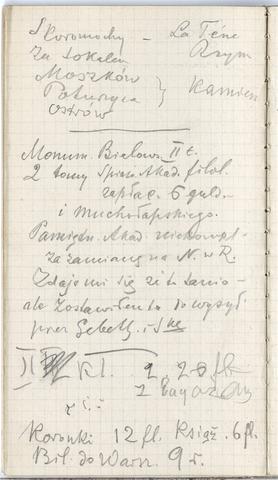 Skoromochy - La Téne
za Sokalem Rzym
Moszków
Poturzyca } Kamien
Ostrów
Monum. Bielows. II t.
2 tomy Spraw. Akad. filol.
zapłac. 6 guld.
i Muchłapskiego.
Pamiętn. Akad. niekompl.
za zamianę na N. w R.
Zdaje mi się że to tanio -
ale zostawiłem to do wysył
przez Gebeth. i Skę
II kl. 2 28 fl
2 bagaż
Koronki 12 fl. Książ. 6 fl.
Bil. do Warsz. 9 r.